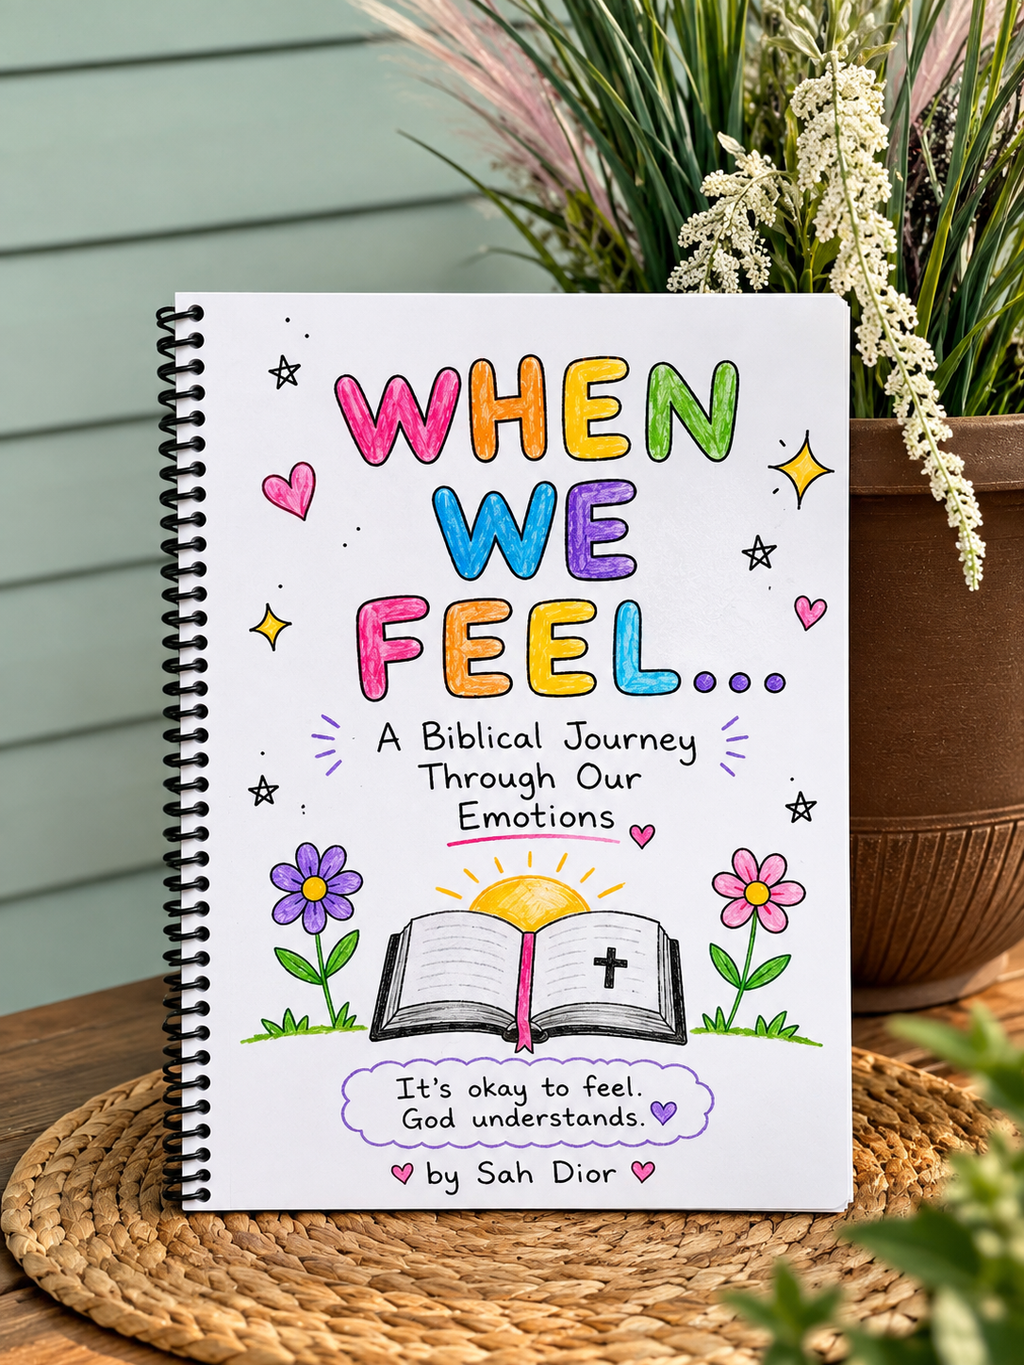 WHEN
WE
FEEL...
A Biblical Journey
Through Our
Emotions
It's okay to feel.
God understands.
by Sah Dior